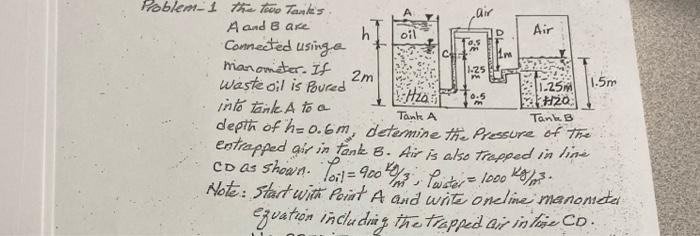 Problem-1 The two Tanks
A and B are
Connected using a
manometer. If
waste oil is Poured
into tank A to a
depth of h=0.6m, determine the Pressure of the
entrapped air in tank B. Air is also Trapped in line
CD as shown. ρoil=900 kg/m³, ρwater=1000 kg/m³.
Note: Start with Point A and write one line manometer
equation including the trapped air in line CD.
A
air
h
oil
D
Air
C
0.5
m
1m
2m
1.25
m
1.25m
1.5m
H2O
0.5
m
H2O
Tank A
Tank B